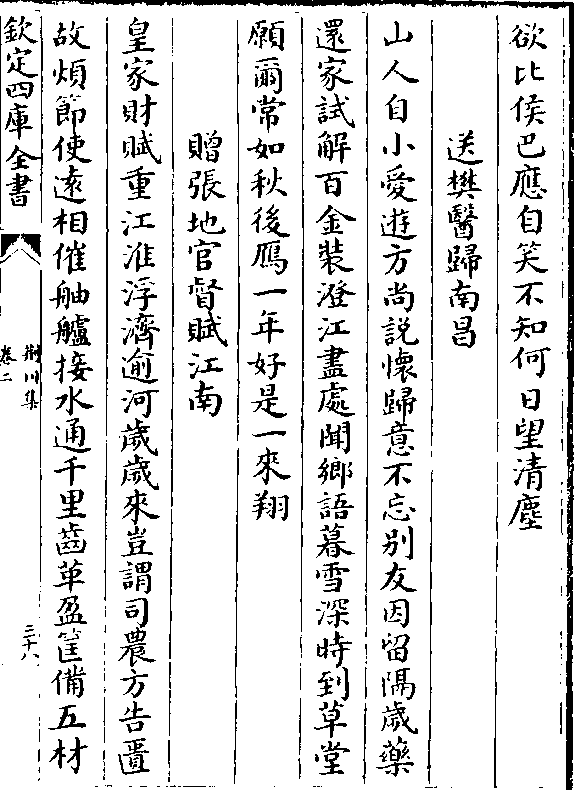 欲比侯巴應自笑不知何日望清塵
送樊醫歸南昌
山人自小愛遊方尚説懷歸意不忘别友因留隔歲藥
還家試解百金裝澄江盡處聞鄉語暮雪深時到草堂
願爾常如秋後鴈一年好是一來翔
贈張地官督賦江南
皇家財賦重江淮浮濟逾河歲歲來豈謂司農方告匱
故煩節使逺相催舳艫接水通千里齒革盈筐備五材
欽定四庫全書
荆川集
卷二
三十八